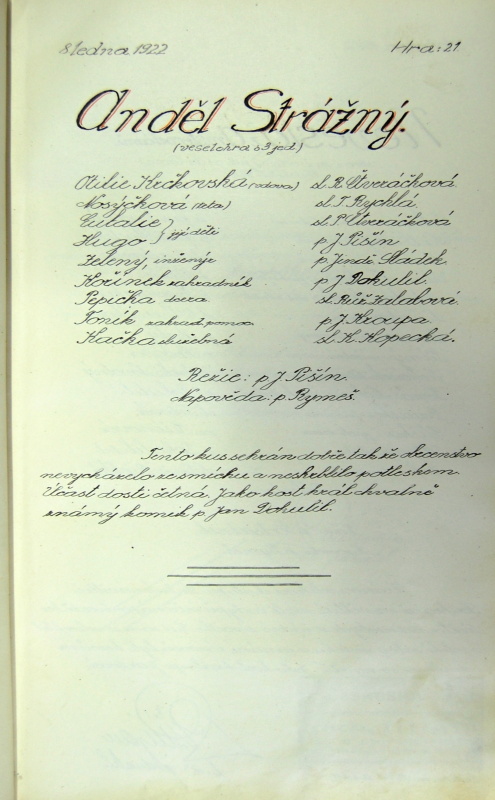 8 ledna 1922 Hra: 21
Anděl Strážný.
(veselohra o 3 jed.)
Otilie Krčkovská (vdova) sl. R. Čtveráčková
Nosýčková (teta) sl. T. Rychlá
Eulalie } její děti sl. P. Čtveráčková
Hugo p. J. Pišín
Zelený, inženýr p. Jindř. Sládek
Kořínek zahradník p. J. Dohulil.
Pepička dcera sl. Růž. Zalabová.
Toník zahrad. pomoc. p. J. Kroupa
Kačka služebná sl. K. Kopecká.
Režie: p. J. Pišín.
Napověda: p. Rymeš.
Tento kus sehrán dobře tak že obecenstvo
nevycházelo ze smíchu a neskrblilo potleskem.
Účast dosti čelná. Jako host hrál chvalně
známý komik p. Jan Dohulil.